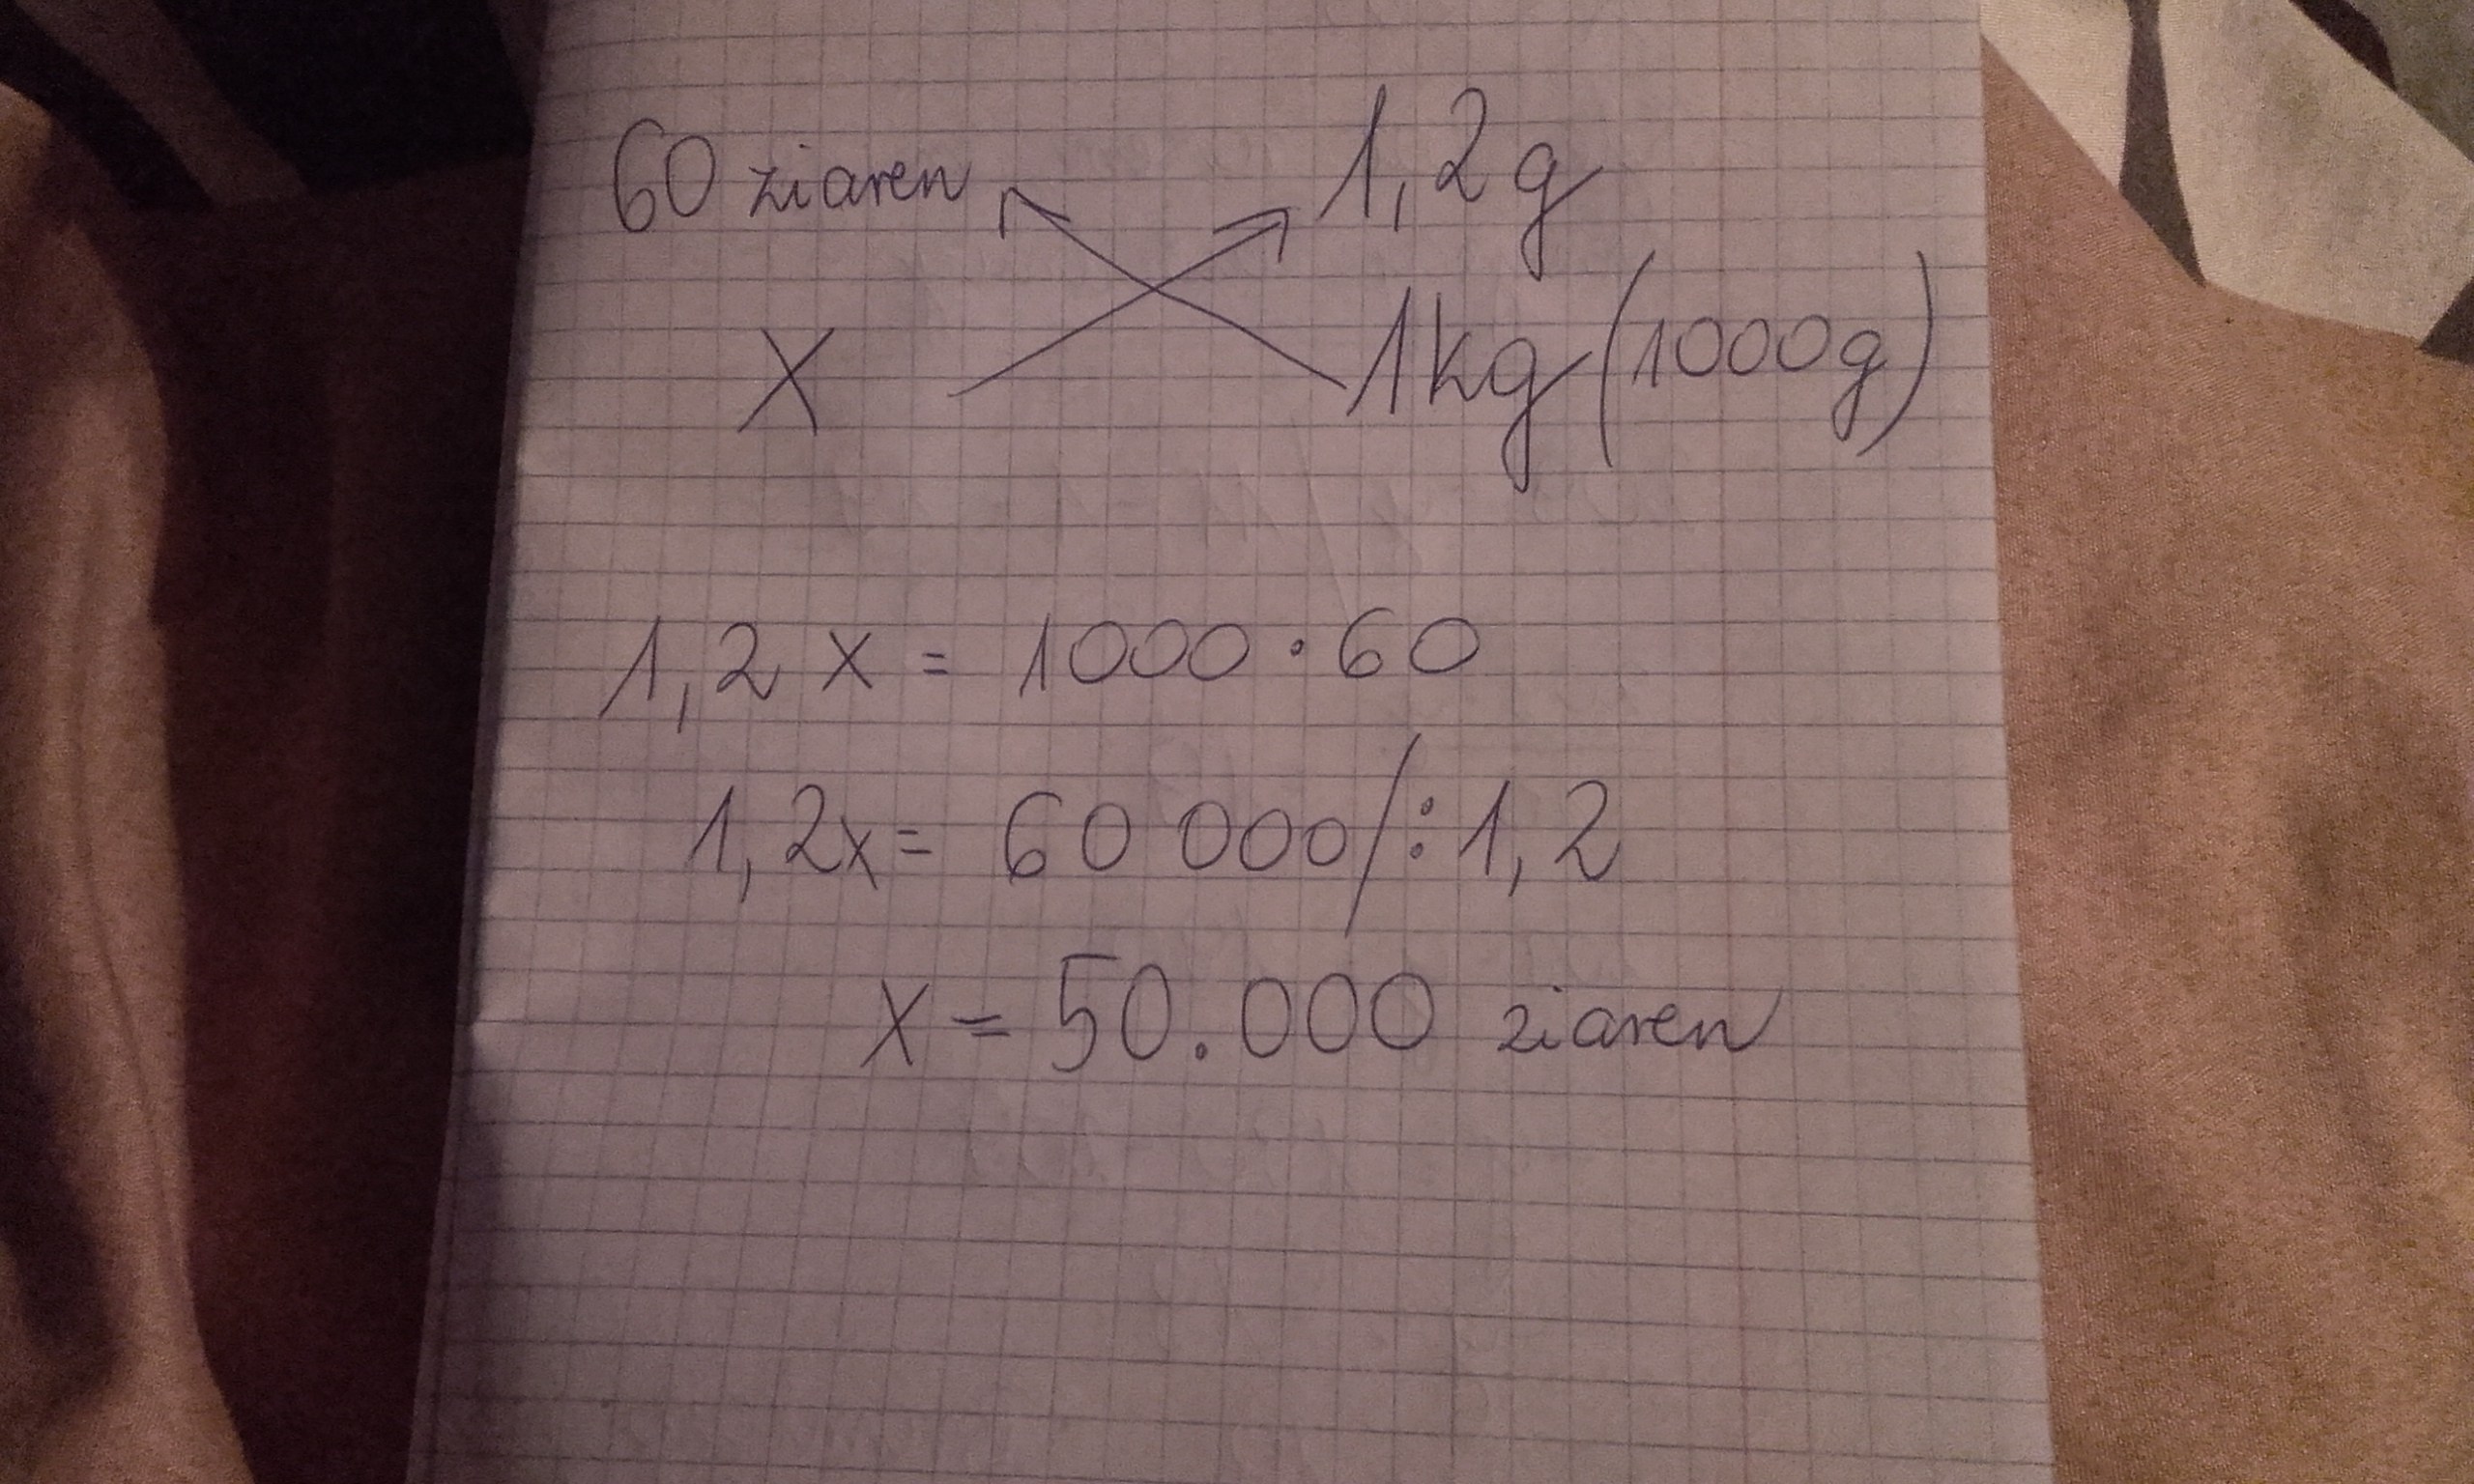 60 ziaren 1,2g
X 1kg (1000g)
1,2 x = 1000 · 60
1,2x = 60 000 /:1,2
x = 50.000 ziaren